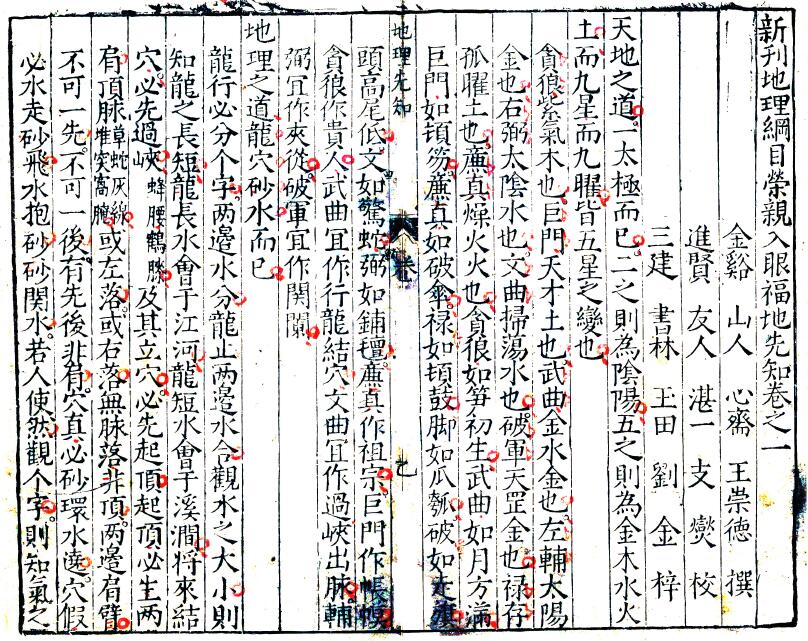 新刊地理綱目榮親入眼福地先知卷之一
金谿 山人 心齋 王崇德 撰
進賢 友人 湛一 支爕 校
三建 書林 玉田 劉金 梓
天地之道一太極而已二之則為陰陽五之則為金木水火
土而九星而九曜皆五星之變也
貪狼紫氣木也巨門天才土也武曲金水金也左輔太陽
金也右弼太陰水也文曲掃蕩水也破軍天罡金也祿存
孤曜土也廉真燥火火也貪狼如笋初生武曲如月方滿
巨門如頓笏廉真如破傘祿如頓鼓脚如瓜瓠破如走旗
地理先知 卷 七
頭高尾低文如驚蛇弼如鋪氊廉真作祖宗巨門作帳幔
貪狼作貴人武曲宜作行龍結穴文曲宜作過峽出脉輔
弼宜作夾從破軍宜作関闌
地理之道龍穴砂水而已
龍行必分个字两邊水分龍止两邊水合觀水之大小則
知龍之長短龍長水會于江河龍短水會于溪澗將來結
穴必先過峽蜂腰鶴膝及其立穴必先起頂起頂必生两
肩頂脉草蛇灰線堆突窩靨或左落或右落無脉落非頂两邊肩臂
不可一先不可一後有先後非肩穴真必砂環水遶穴假
必水走砂飛水抱砂砂関水若人使然觀个字則知氣之